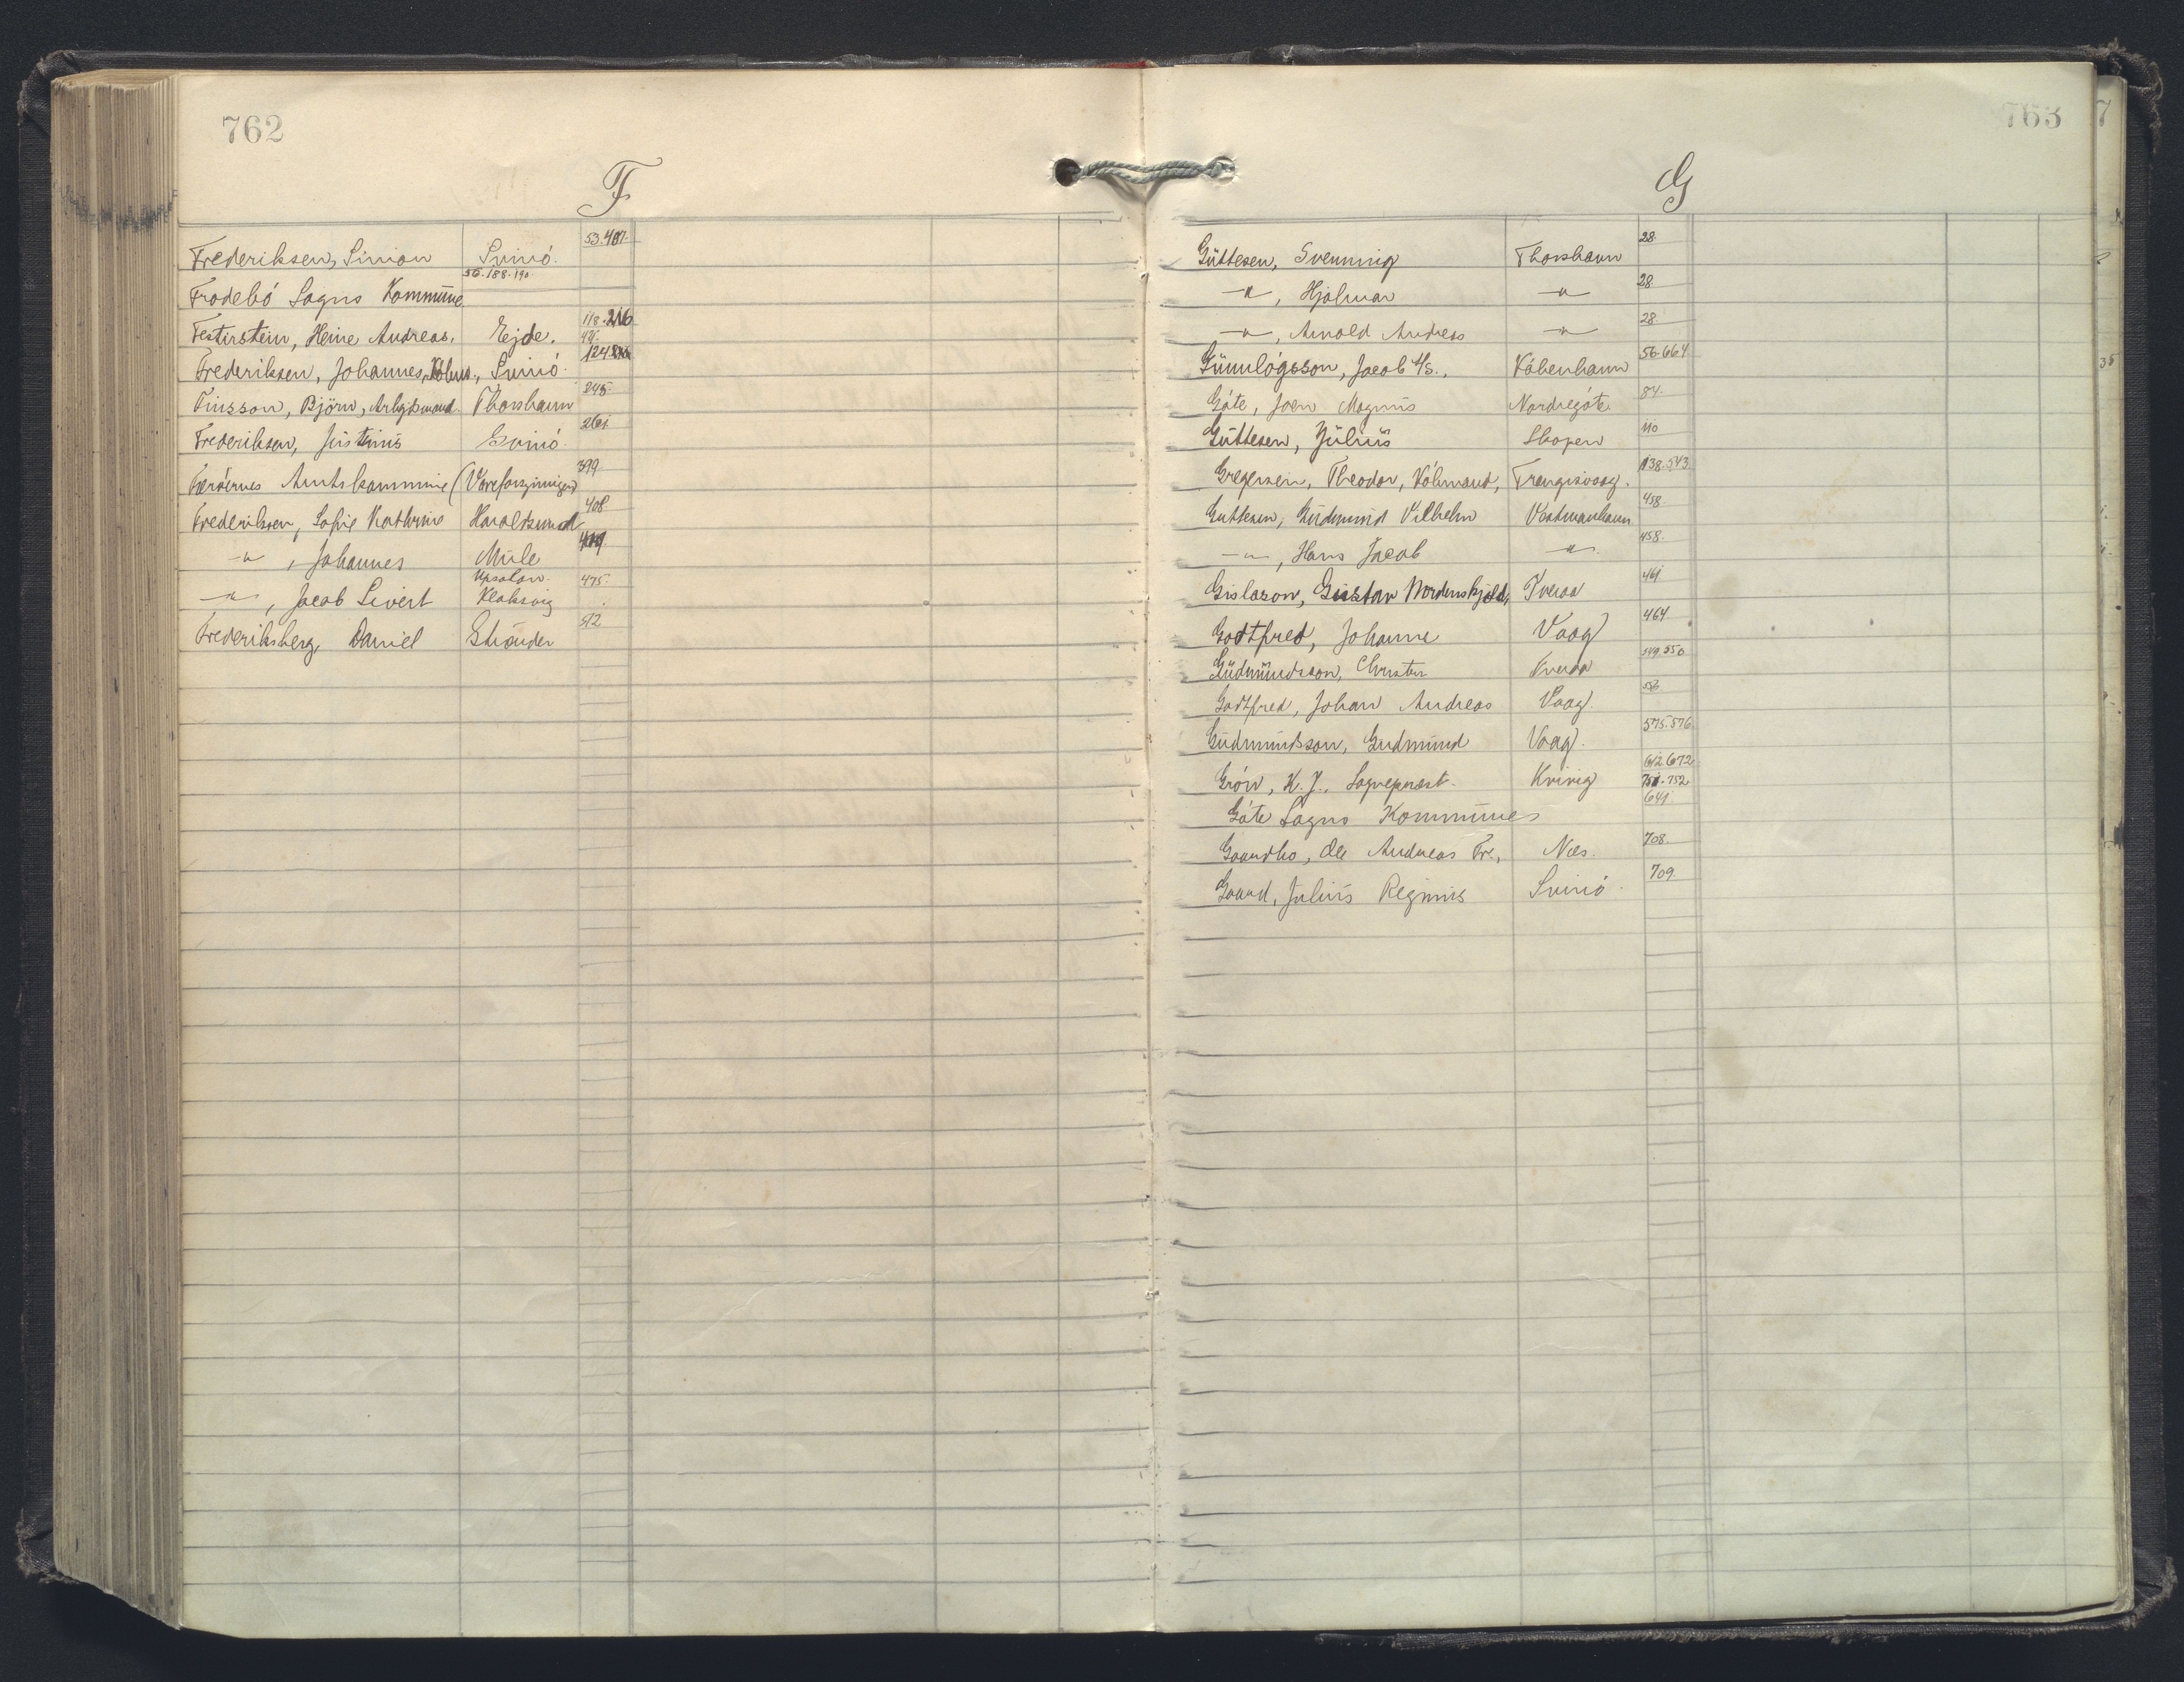 762
F
Frederiksen, Simon Svinó. 53.407.
Frodebó Sogns Kommune 56.188.190
Festirstein, Heine Andreas, Ejde. 118.216
Frederiksen, Johannes, Svinó. 124
Finsson, Björn, Arbejdsmand. Thorshavn 245
Frederiksen, Justinus Svinó. 261
Færóernes Amtskommune (Vareforsyningen) 399
Frederiksen, Sofie Kathrine Haraldsund 408
-"-, Johannes Mule
-"-, Jacob Sivert Klaksvig 475.
Frederiksberg, Daniel Strænder 512
763
G
Güttesen, Svenning Thorshavn 28.
-"-, Hjalmar -"- 28.
-"-, Arnold Andreas -"- 28.
Günnlógsson, Jacob A/S., Kóbenhavn 56.664
Góte, Joen Magnus Nordregóte. 84.
Güttesen, Jülius Skopen 110
Gregersen, Theodor, Kóbmand, Trangisvaag. 138.543
Guttesen, Gudmund Vilhelm Vestmanhavn 458.
-"-, Hans Jacob -"- 458.
Gislason, Gustav Nordenskjold, Tveraa 461
Godtfred, Johanne Vaag 464.
Güdmündsson, Christen Tveraa 549.550
Godtfred, Johan Andreas Vaag. 556
Güdmündsson, Gudmund Vaag. 575.576
Grón, K. J., Sognepræst. Kvivig 612.672. 751.752.
Góte Sogns Kommune 641
Gaardbo, Ole Andreas Fr., Næs. 708.
Gaard, Julius Reginus Svinó. 709